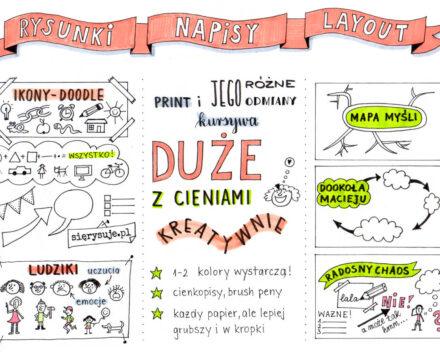 RYSUNKI
NAPISY
LAYOUT
IKONY-DOODLE
WSZYSTKO!
sierysuje.pl
LUDZIKI
uczucia
emocje
PRINT i JEGO RÓŻNE ODMIANY
kursywa
DUŻE
Z CIENIAMI
KREATYWNIE
1-2 kolory wystarczą!
cienkopisy, brush peny
każdy papier, ale lepiej
grubszy i w kropki
MAPA MYŚLI
DOOKOŁA
MACIEJU
RADOSNY CHAOS
lala
NIE!
WAŻNE!
1
2
3
a może tak
hmm...